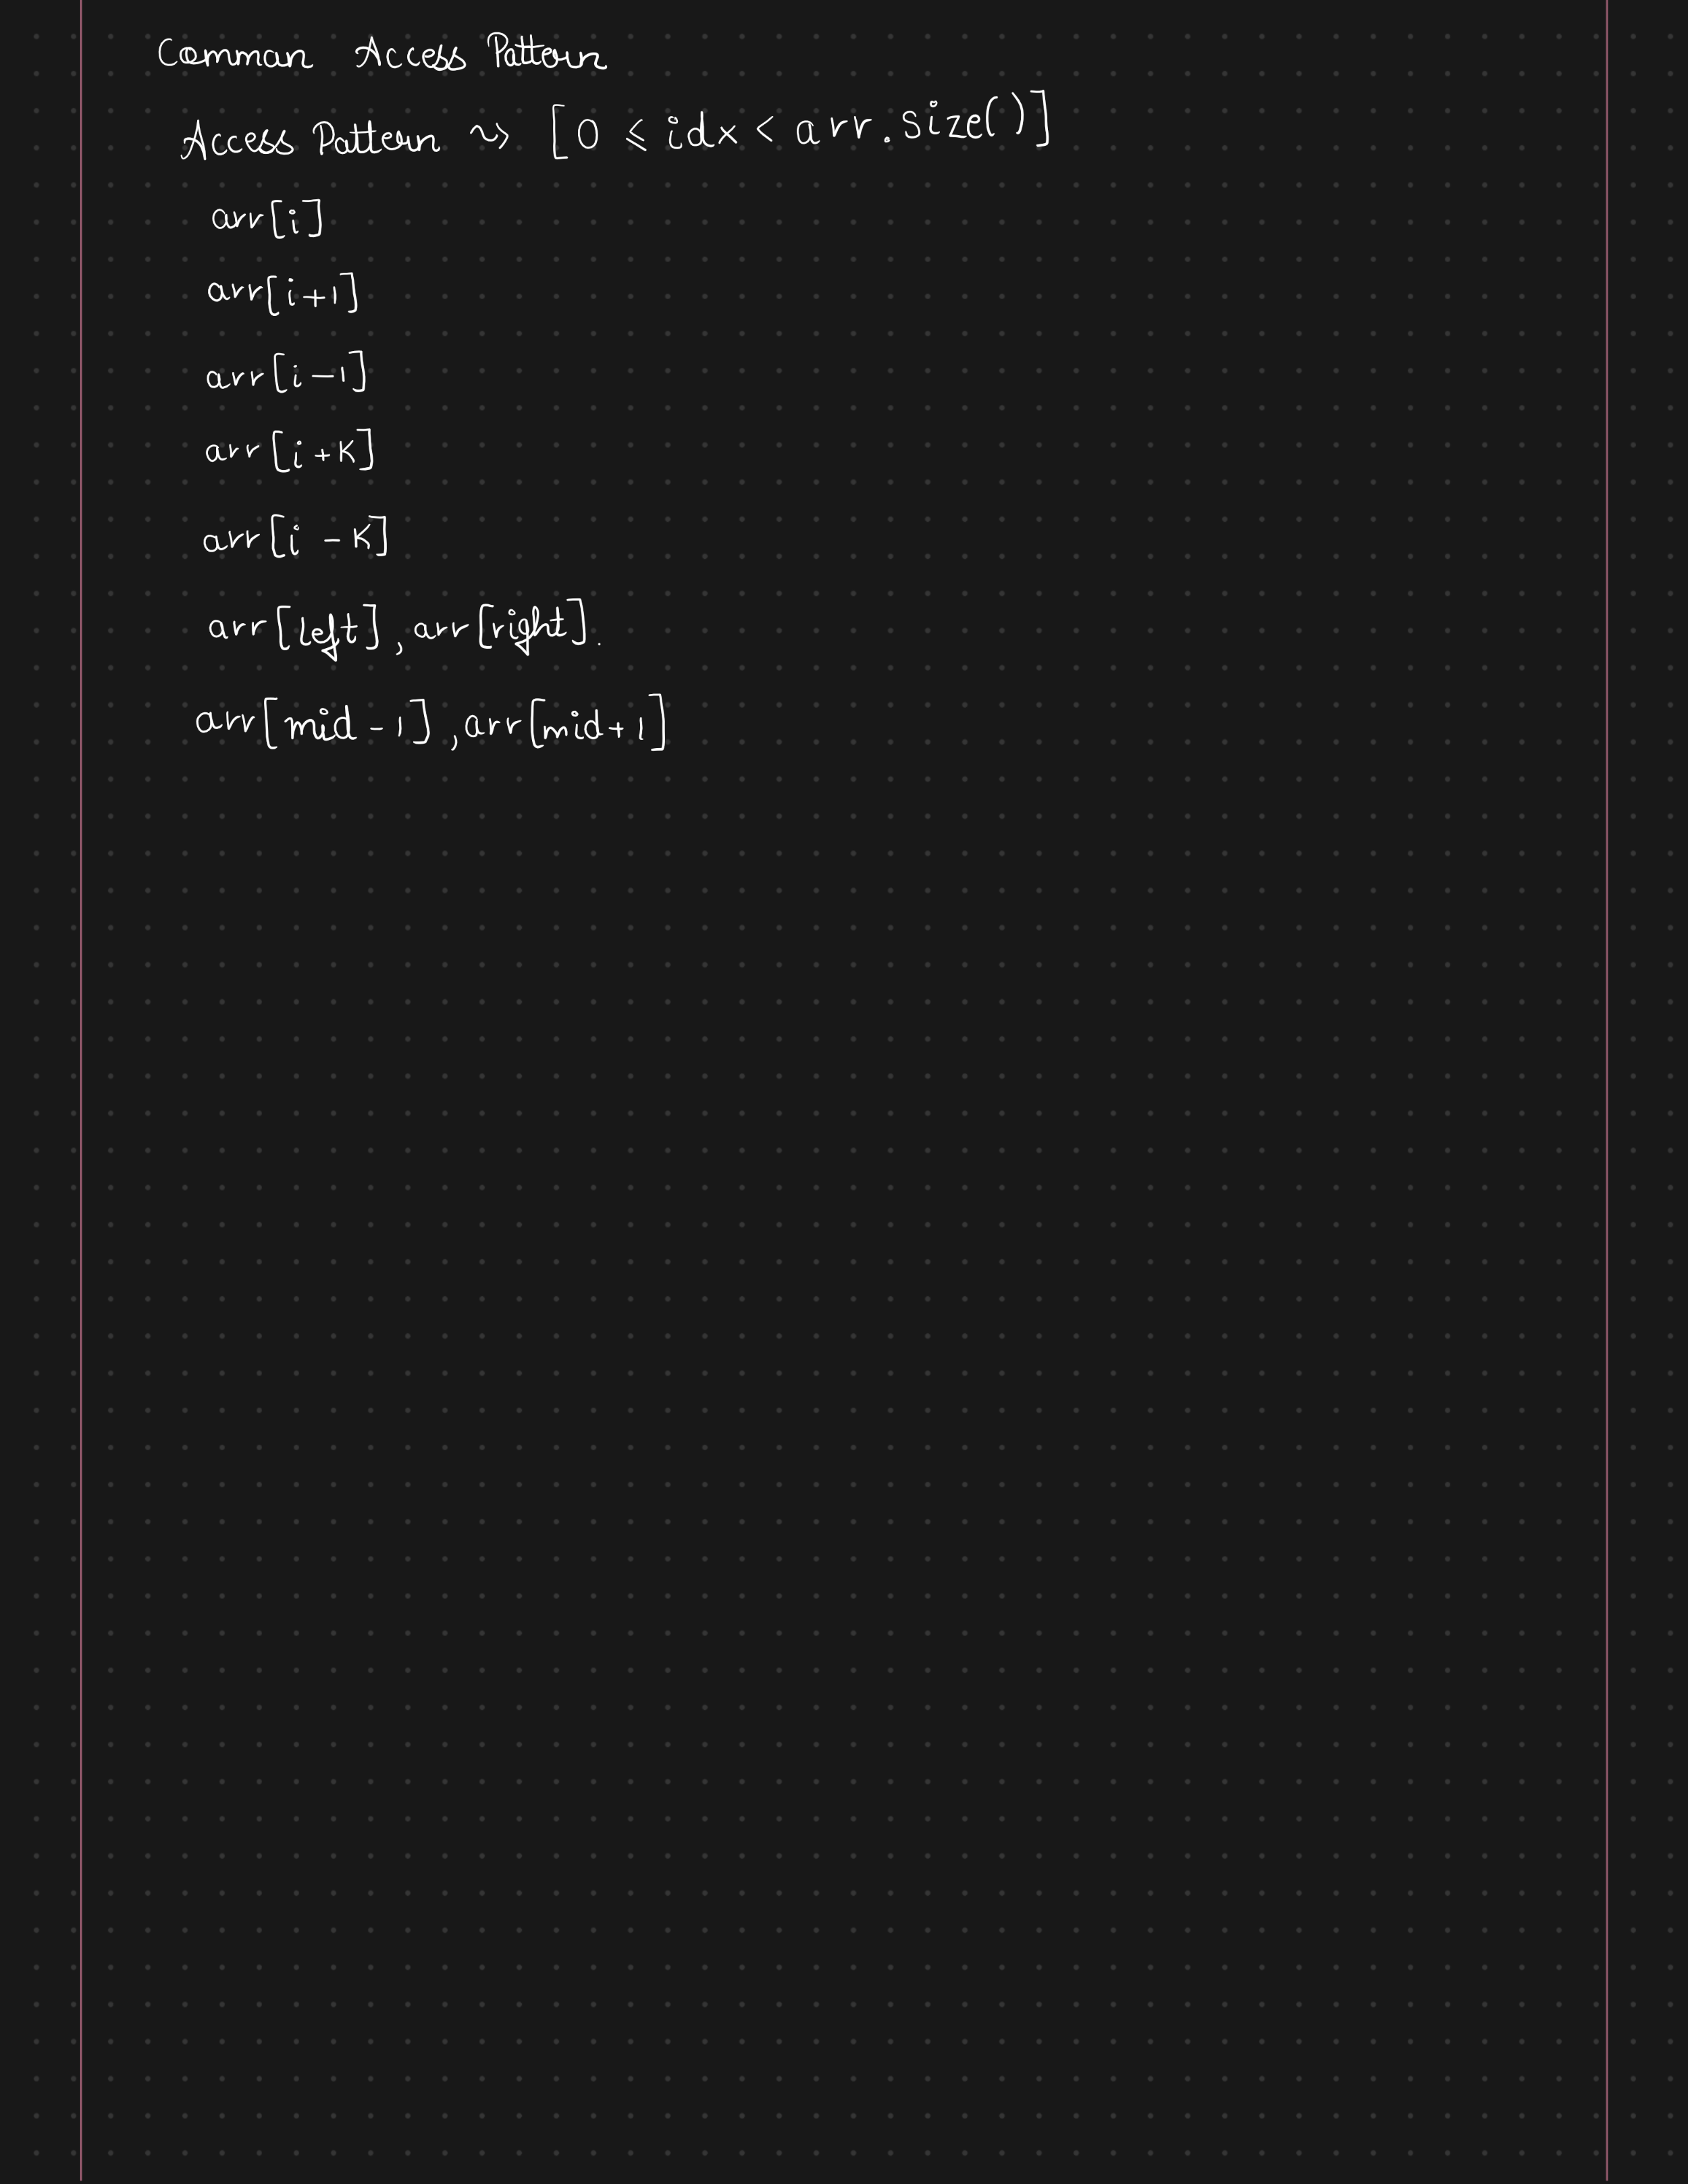 Common Access Pattern
Access Pattern ⇝ [0 ≤ idx < arr.size()]
arr[i]
arr[i+1]
arr[i-1]
arr[i+K]
arr[i-K]
arr[left], arr[right].
arr[mid-1], arr[mid+1]